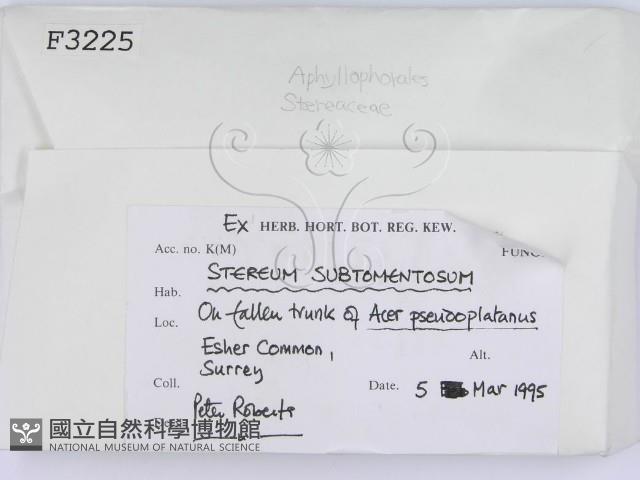 F3225
Aphyllophorales
Stereaceae
Ex HERB. HORT. BOT. REG. KEW.
Acc. no. K(M)
FUNGI
STEREUM SUBTOMENTOSUM
Hab.
On fallen trunk of Acer pseudoplatanus
Loc.
Esher Common,
Surrey
Alt.
Coll.
Date. 5 Mar 1995
Peter Roberts
國立自然科學博物館
NATIONAL MUSEUM OF NATURAL SCIENCE